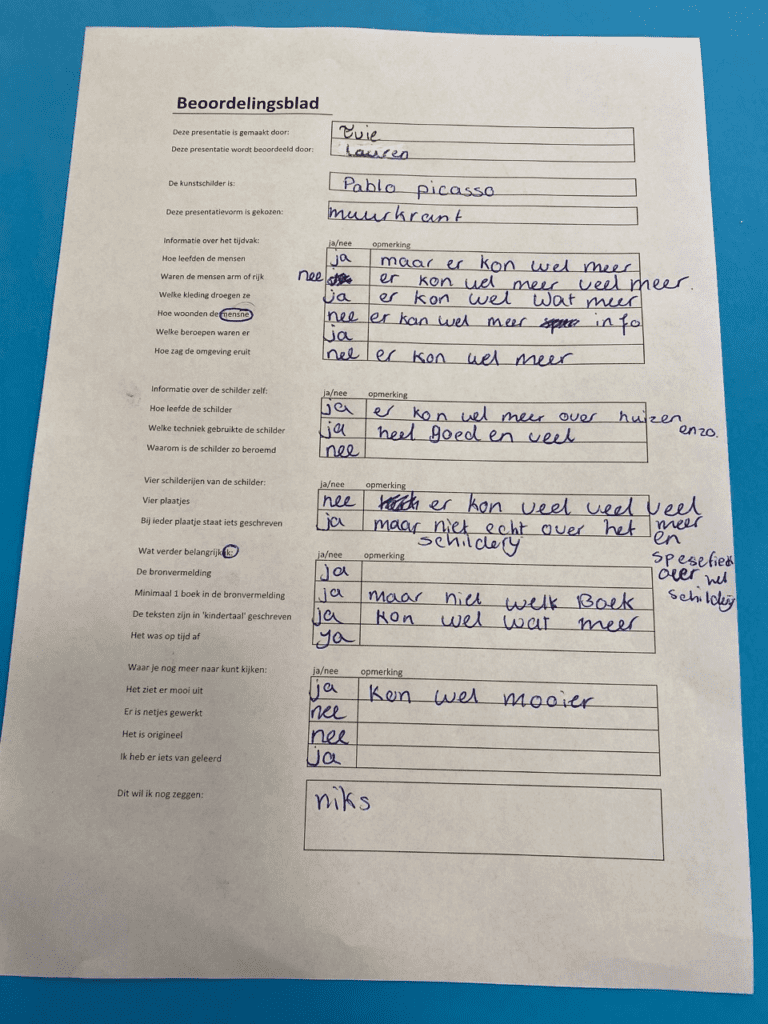 Beoordelingsblad
Deze presentatie is gemaakt door: Evie
Deze presentatie wordt beoordeeld door: Lauren
De kunstschilder is: Pablo picasso
Deze presentatievorm is gekozen: muurkrant
Informatie over het tijdvak: ja/nee opmerking
Hoe leefden de mensen ja maar er kon wel meer
Waren de mensen arm of rijk nee er kon wel meer veel meer.
Welke kleding droegen ze ja er kon wel wat meer
Hoe woonden de mensne nee er kan wel meer info
Welke beroepen waren er ja
Hoe zag de omgeving eruit nee er kon wel meer
Informatie over de schilder zelf: ja/nee opmerking
Hoe leefde de schilder ja er kon wel meer over huizen
enzo.
Welke techniek gebruikte de schilder ja heel goed en veel
Waarom is de schilder zo beroemd nee
Vier schilderijen van de schilder: ja/nee opmerking
Vier plaatjes nee er kon veel veel veel
meer
en
spesefiek
over het
schilderij
Bij ieder plaatje staat iets geschreven ja maar niet echt over het
schilderij
Wat verder belangrijk ik: ja/nee opmerking
De bronvermelding ja
Minimaal 1 boek in de bronvermelding ja maar niet welk Boek
De teksten zijn in 'kindertaal' geschreven ja kon wel wat meer
Het was op tijd af ja
Waar je nog meer naar kunt kijken: ja/nee opmerking
Het ziet er mooi uit ja Kon wel mooier
Er is netjes gewerkt nee
Het is origineel nee
Ik heb er iets van geleerd ja
Dit wil ik nog zeggen: niks